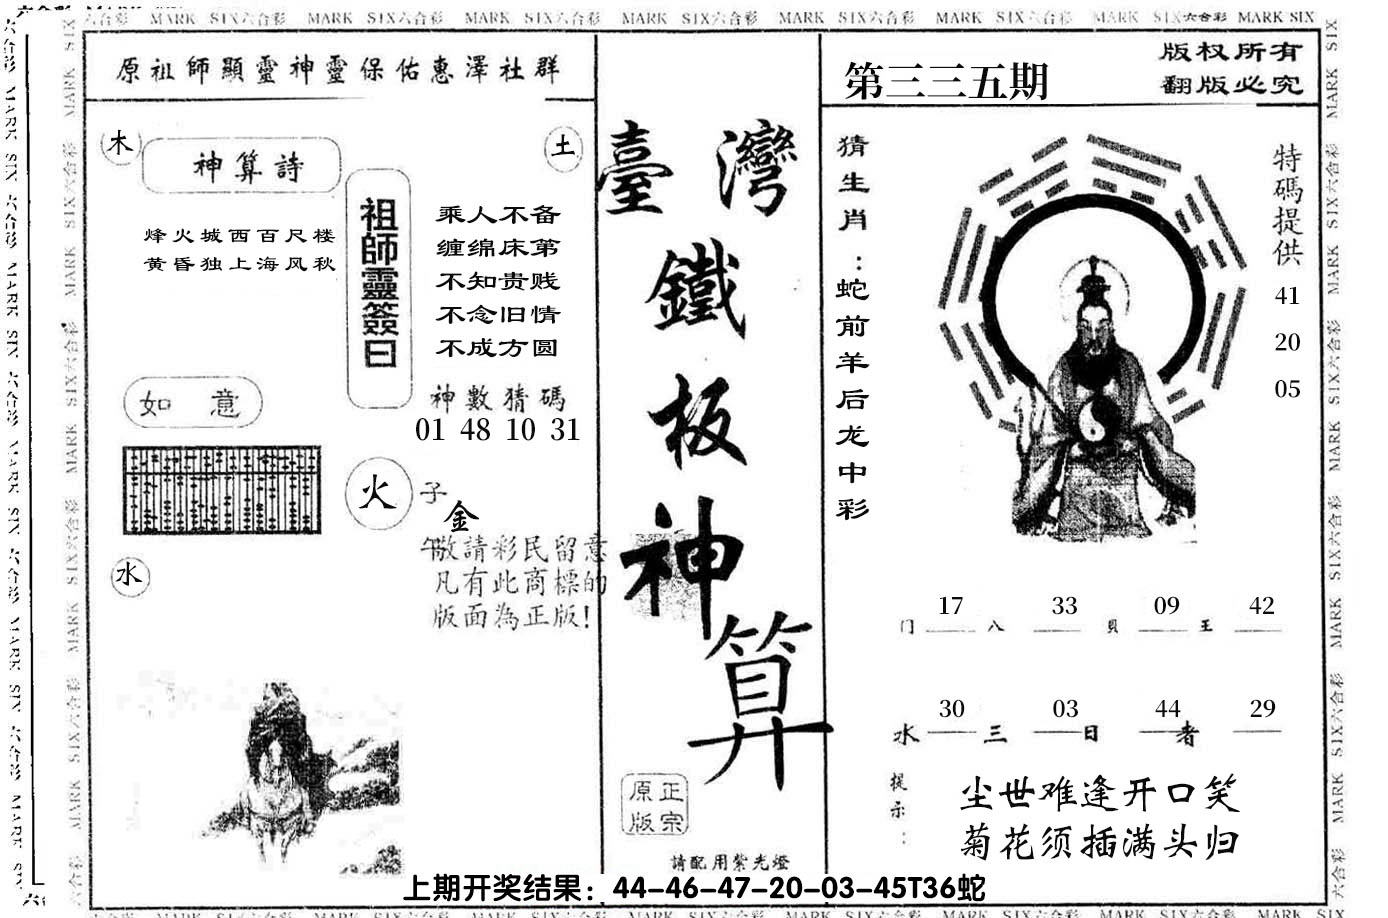 六合彩 MARK SIX六合彩 MARK SIX六合彩 MARK SIX六合彩 MARK SIX六合彩 MARK SIX六合彩 MARK SIX六合彩 MARK SIX六合彩 MARK SIX
原祖師顯靈神靈保佑惠澤社群
木
土
神算詩
烽火城西百尺楼
黄昏独上海风秋
祖師靈簽曰
乘人不备
缠绵床第
不知贵贱
不念旧情
不成方圆
神數猜碼
01 48 10 31
如意
火
子
金
午
水
敬請彩民留意
凡有此商標的
版面為正版!
臺灣
鐵
板
神
算
正宗
原版
請配用紫光燈
第三三五期
版权所有
翻版必究
猜生肖:蛇前羊后龙中彩
特碼提供
41
20
05
17 33 09 42
门 八 貝 王
30 03 44 29
水 三 日 者
提示:
尘世难逢开口笑
菊花须插满头归
上期开奖结果：44-46-47-20-03-45T36蛇